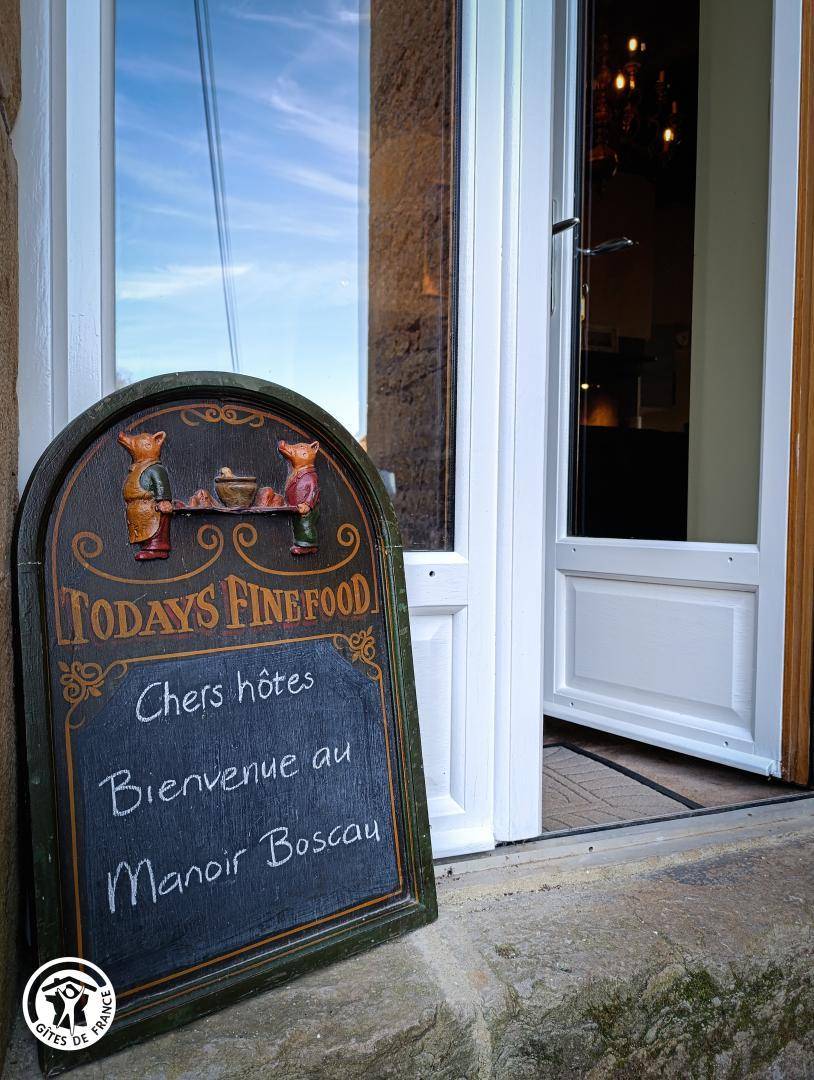 TODAYS FINE FOOD
Chers hôtes
Bienvenue au
Manoir Boscau
GÎTES DE FRANCE